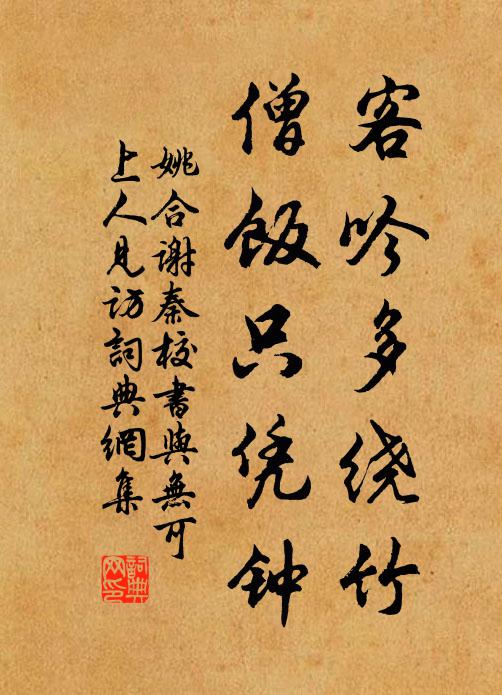 客吟多绕竹
僧饭只凭钟
姚合谢秦校书與無可
上人見訪詞典網集
詞典
网印